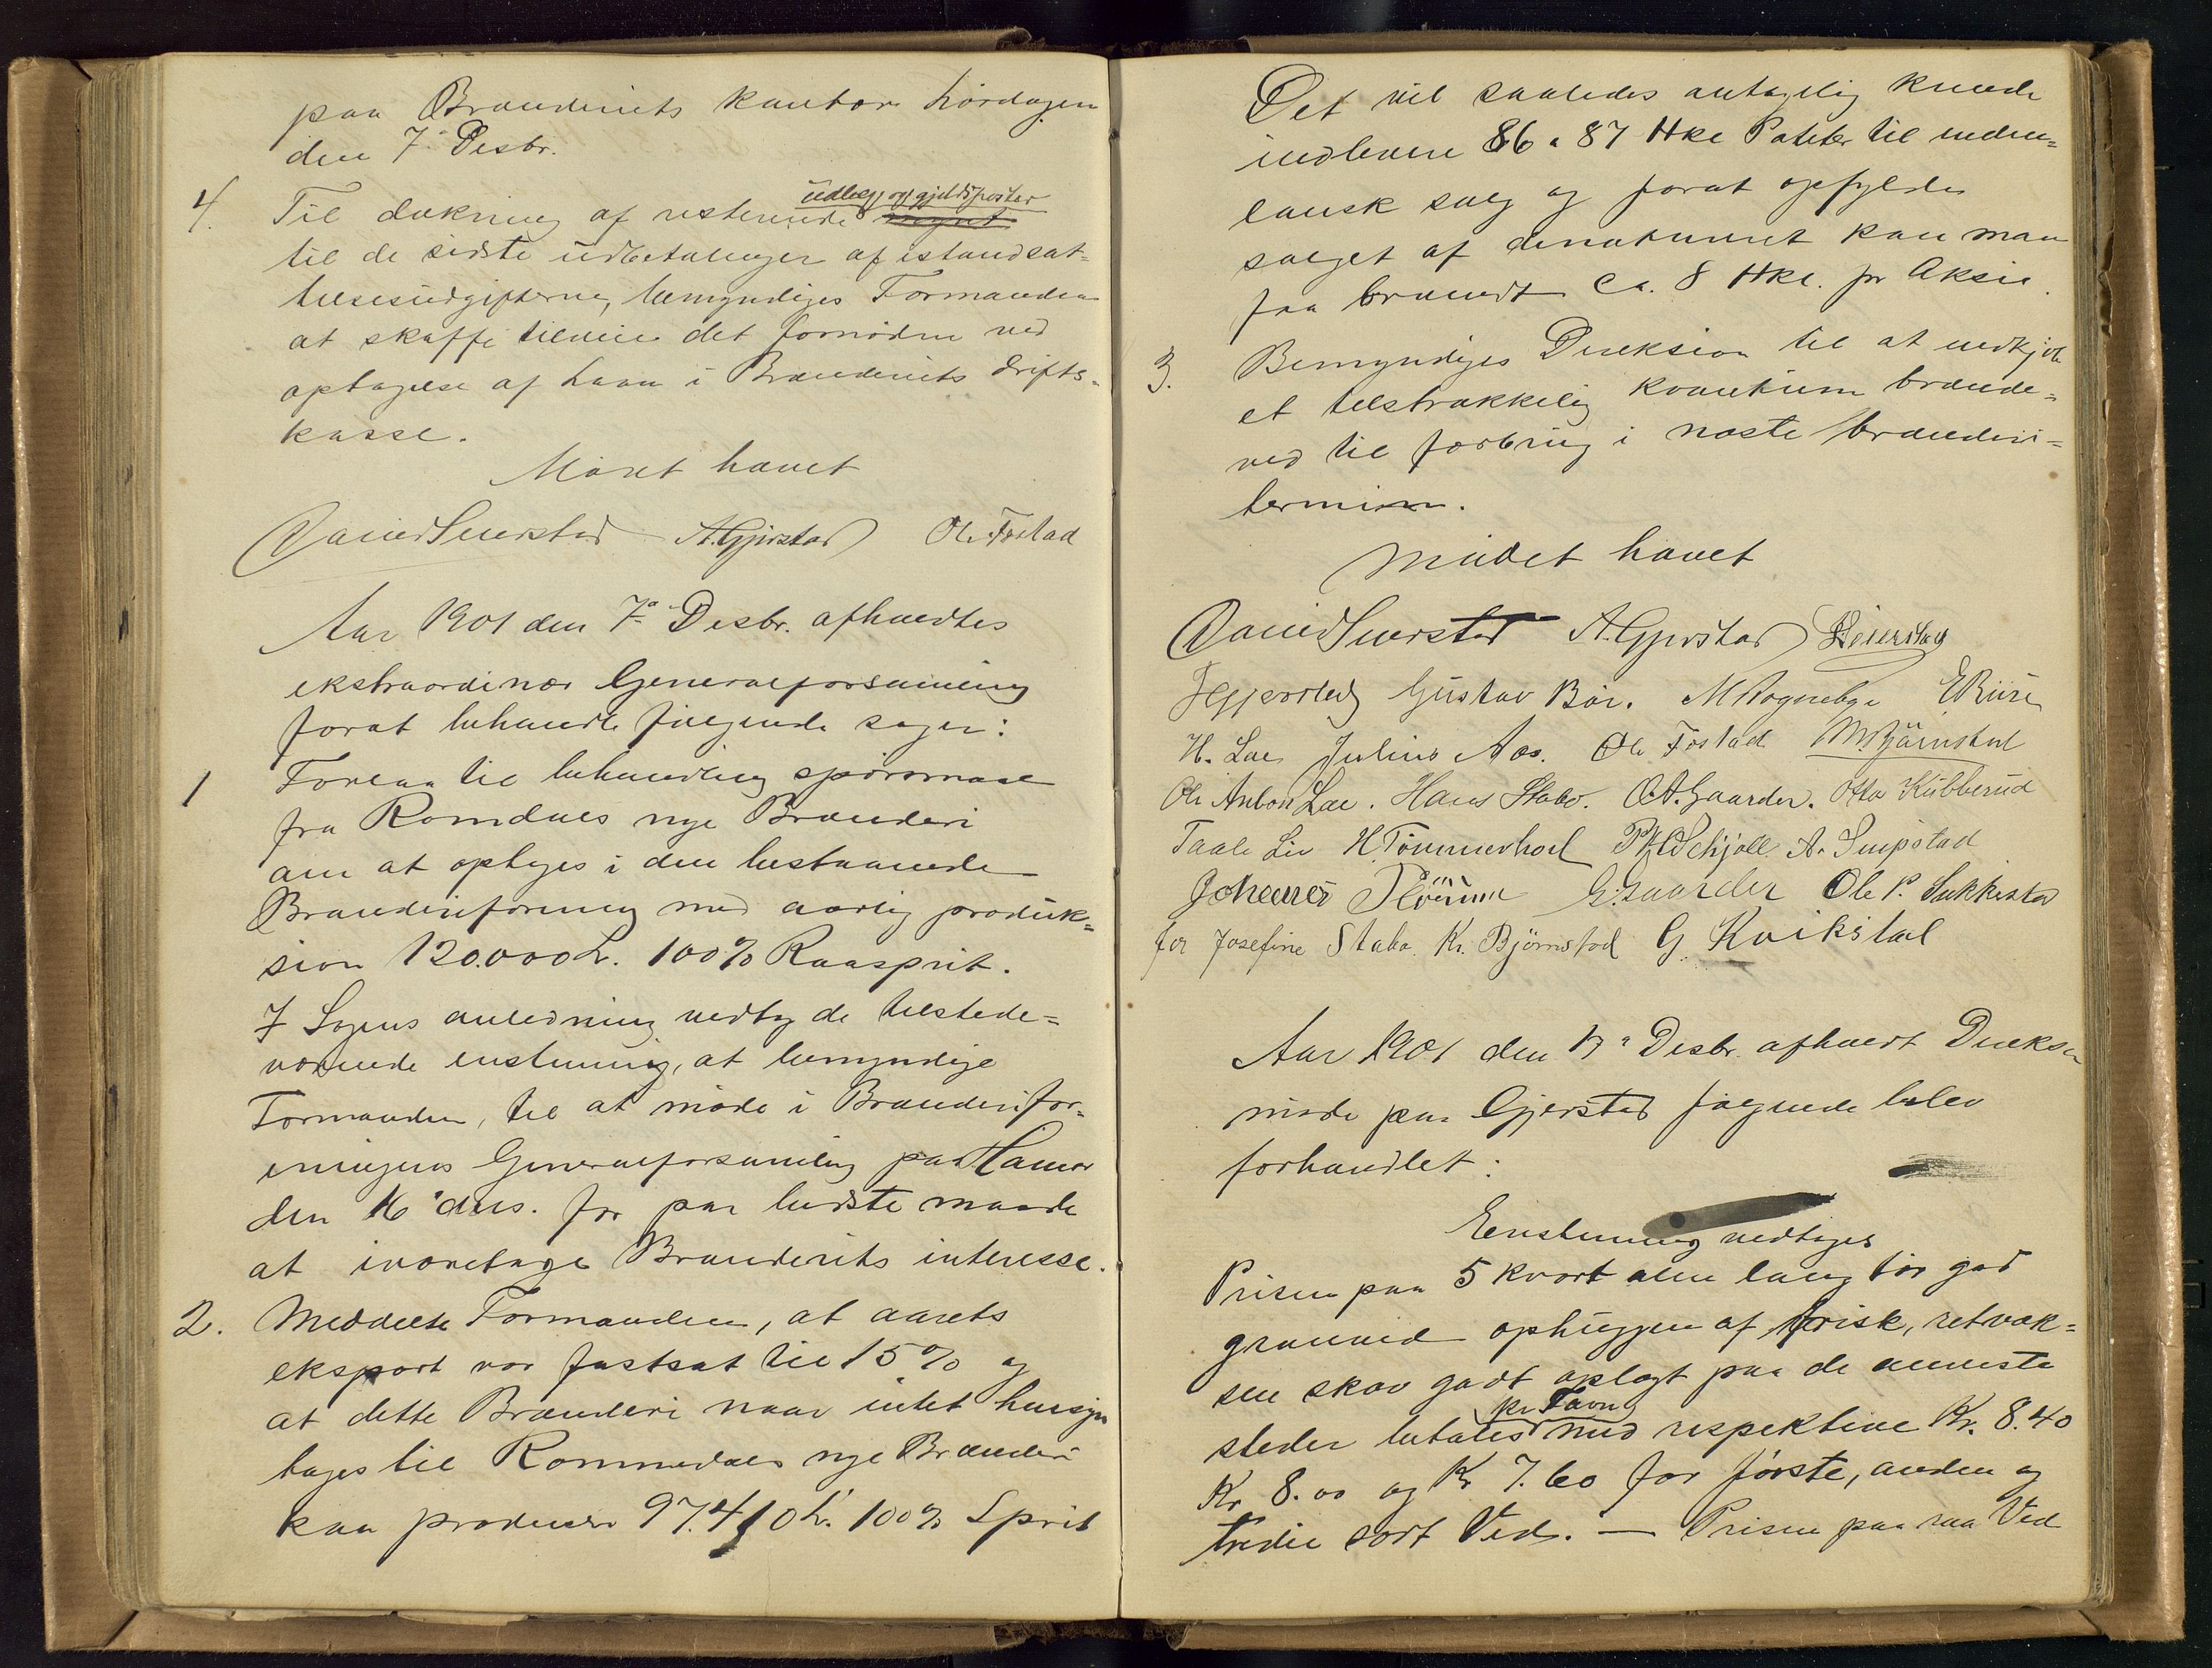 paa Brænderiets kontor Lørdagen
den 7de Desbr.
4. Til dækning af resterende udlæg og gjeldsposter
til de sidste udbetalinger af istandsæt-
telsesudgifterne, bemyndiges Formanden
at skaffe tilveie det fornødne ved
optagelse af Laan i Brænderiets drifts-
kasse.
Mødet hævet
A. Gjerstad Ole Fostad
Aar 1901 den 7de Desbr. afholdtes
ekstraordinær Generalforsamling
forat behandle følgende sager:
1 Forelaa til behandling spørsmaal
fra Romdals nye Brænderi
om at optages i den bestaaende
Brænderiforening med aarlig produk-
sion 120.000 L. 100% Raasprit.
I Sagens anledning vedtog de tilstede-
værende enstemmig, at bemyndige
Formanden, til at møde i Brænderifor-
eningens Generalforsamling paa Hamar
den 16de ds. for paa bedste maade
at ivaretage Brænderiets interesse.
2. Meddelte Formanden, at aarets
eksport var fastsat til 15% og
at dette Brænderi naar intet hensyn
tages til Rommedals nye Brænderi
kan producere 97.410 L. 100% Sprit
Det vil saaledes antagelig kunde
indlevere 86 a 87 Hkl Poteter til inden-
lansk salg og forat opfylde
salget af denatureret kan man
faa brændt Ca. 8 Hkl. pr Aksie.
3. Bemyndiges Direksion til at indkjøbe
et tilstrækkelig kvantum brænde-
ved til forbrug i næste brænderi-
termin.
Mødet hævet
A. Gjerstad
Gustav Bør. M Rognebye E Riise
H. Lae Julius Aas. Ole Fostad M. Bjørnstad
Ole Anton Lae. Hans Stabo. O. A. Gaarder. Otto Kubberud
Taale Lie H Tømmerhol A. Smestad
Johannes G. Gaarder Ole P. Sukkestad
for Josefine Stabo. Kr. Bjørnstad G. Kvikstad
Aar 1901 den 17de Desbr. afholdt Direksi
møde paa Gjerstad følgende blev
forhandlet:
Eenstemmig vedtages
Prisen paa 5 kvart alen lang tør god
granved ophuggen af frisk, retvok-
sen skov godt oplagt paa de anviste
steder betales pr Favn med respektive Kr. 8.40
Kr 8.00 og Kr 7.60 for første, anden og
tredie sort Ved. — Prisen paa raa Ved